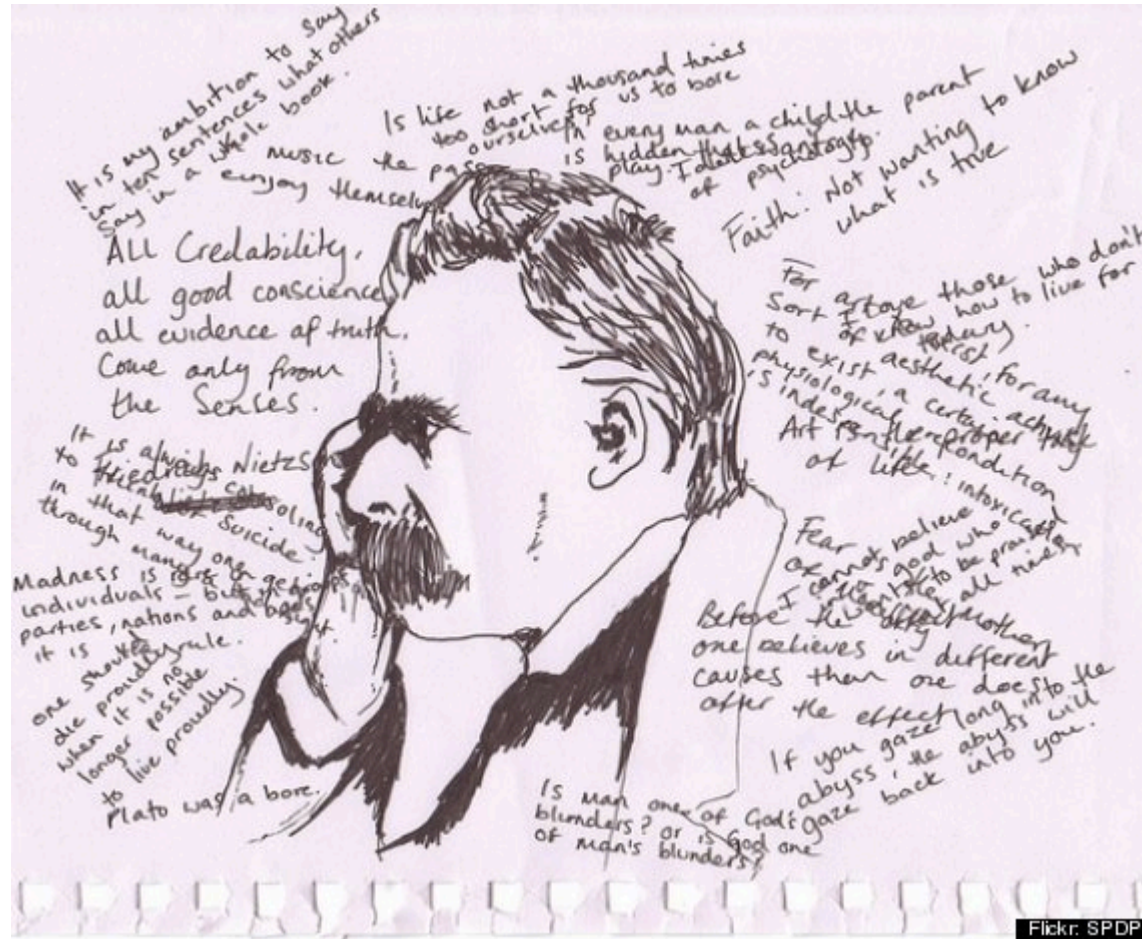 It is my ambition to say
in ten sentences what others
say in a whole book.
Is life not a thousand times
too short for us to bore
ourselves?
In every man a child
is hidden that wants to
play.
the parent
of psychology.
music the
enjoy
Faith: Not wanting to know
what is true
All Credability,
all good conscience
all evidence of truth.
Come only from
the Senses.
For art to
Sort of
to exist, for any
aesthetic activity
physiological
a certain
precondition
is indespensible: intoxication
I love those who don't
know how to live for
today.
Art is the proper task
of life.
It is always
to think of Suicide
in that way one
through many
Friedrich Nietzs
Madness is rare in
individuals – but in groups
parties, nations and
it is
rule.
one should
die proudly
when it is no
longer possible
to live proudly.
Plato was a bore.
I cannot believe
a god who
to be praised
all times
Fear
mother
of
Before the effect
one believes in different
causes than one does
after the effect
If you gaze long into the
abyss, the abyss will
gaze back into you.
Is man one of God's
blunders? or is God one
of man's blunders?
Flickr: SPDP